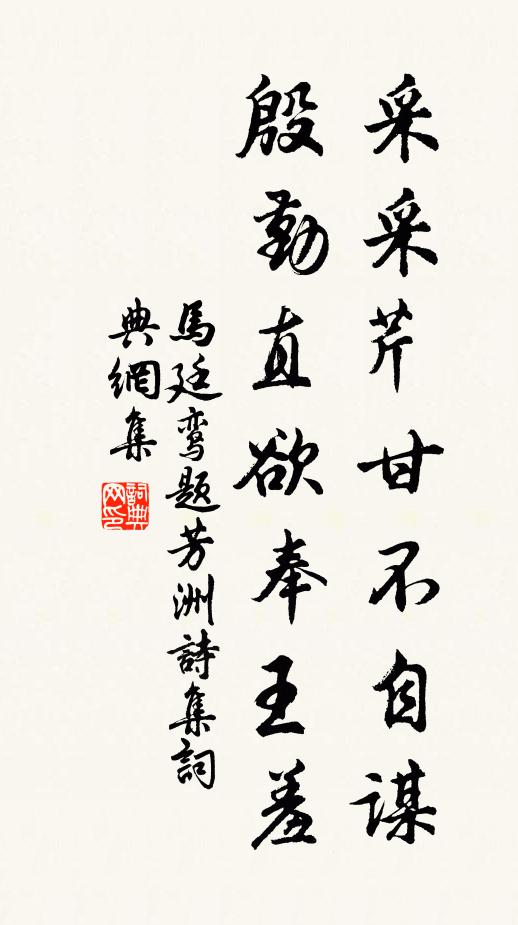 采采芹甘不自謀
殷勤直欲奉王羞
馬廷鸾題芳洲詩集詞
典網集
詞典
网印